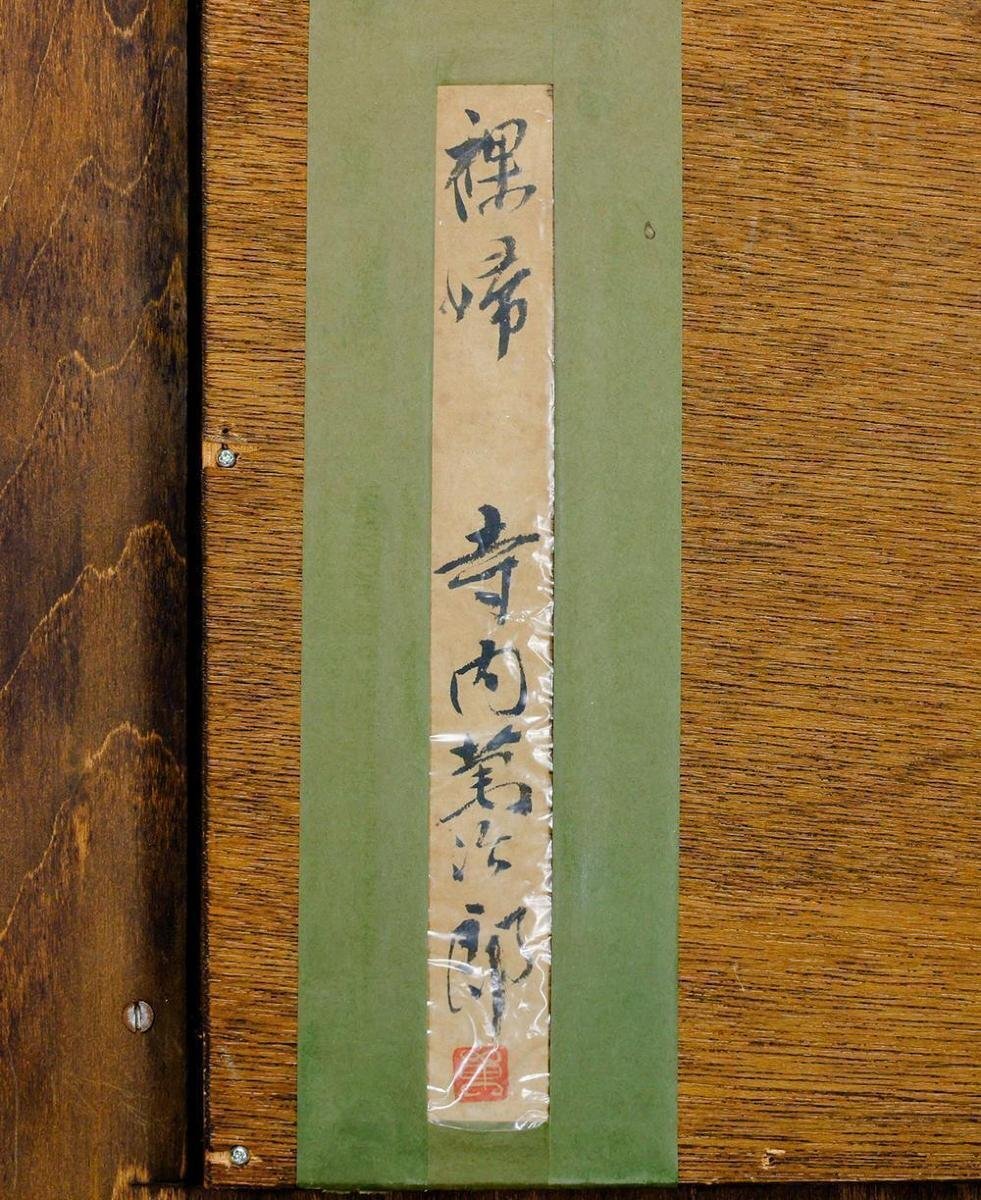 裸婦 寺内萬治郎